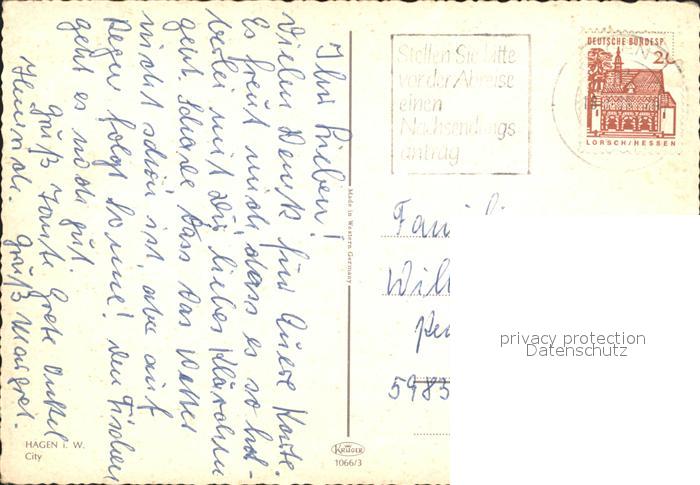 Ihr Lieben!
Vielen Dank für Eure Karte.
Es freut mich, dass es so hat-
mit Dir liebes Klärchen
geht. Schade dass das Wetter
nicht schön ist, aber auf
Regen folgt Sonne! Den Fischen
geht es noch gut.
Gruß Tante Grete Onkel
Heinrich. Gruß Margret.
HAGEN i. W.
City
Made in Western Germany
KRÜGER
1066/3
Stellen Sie bitte
vor der Abreise
einen
Nachsendungs
antrag
DEUTSCHE BUNDESP
LORSCH/HESSEN
Fami
Wil
5983
privacy protection
Datenschutz